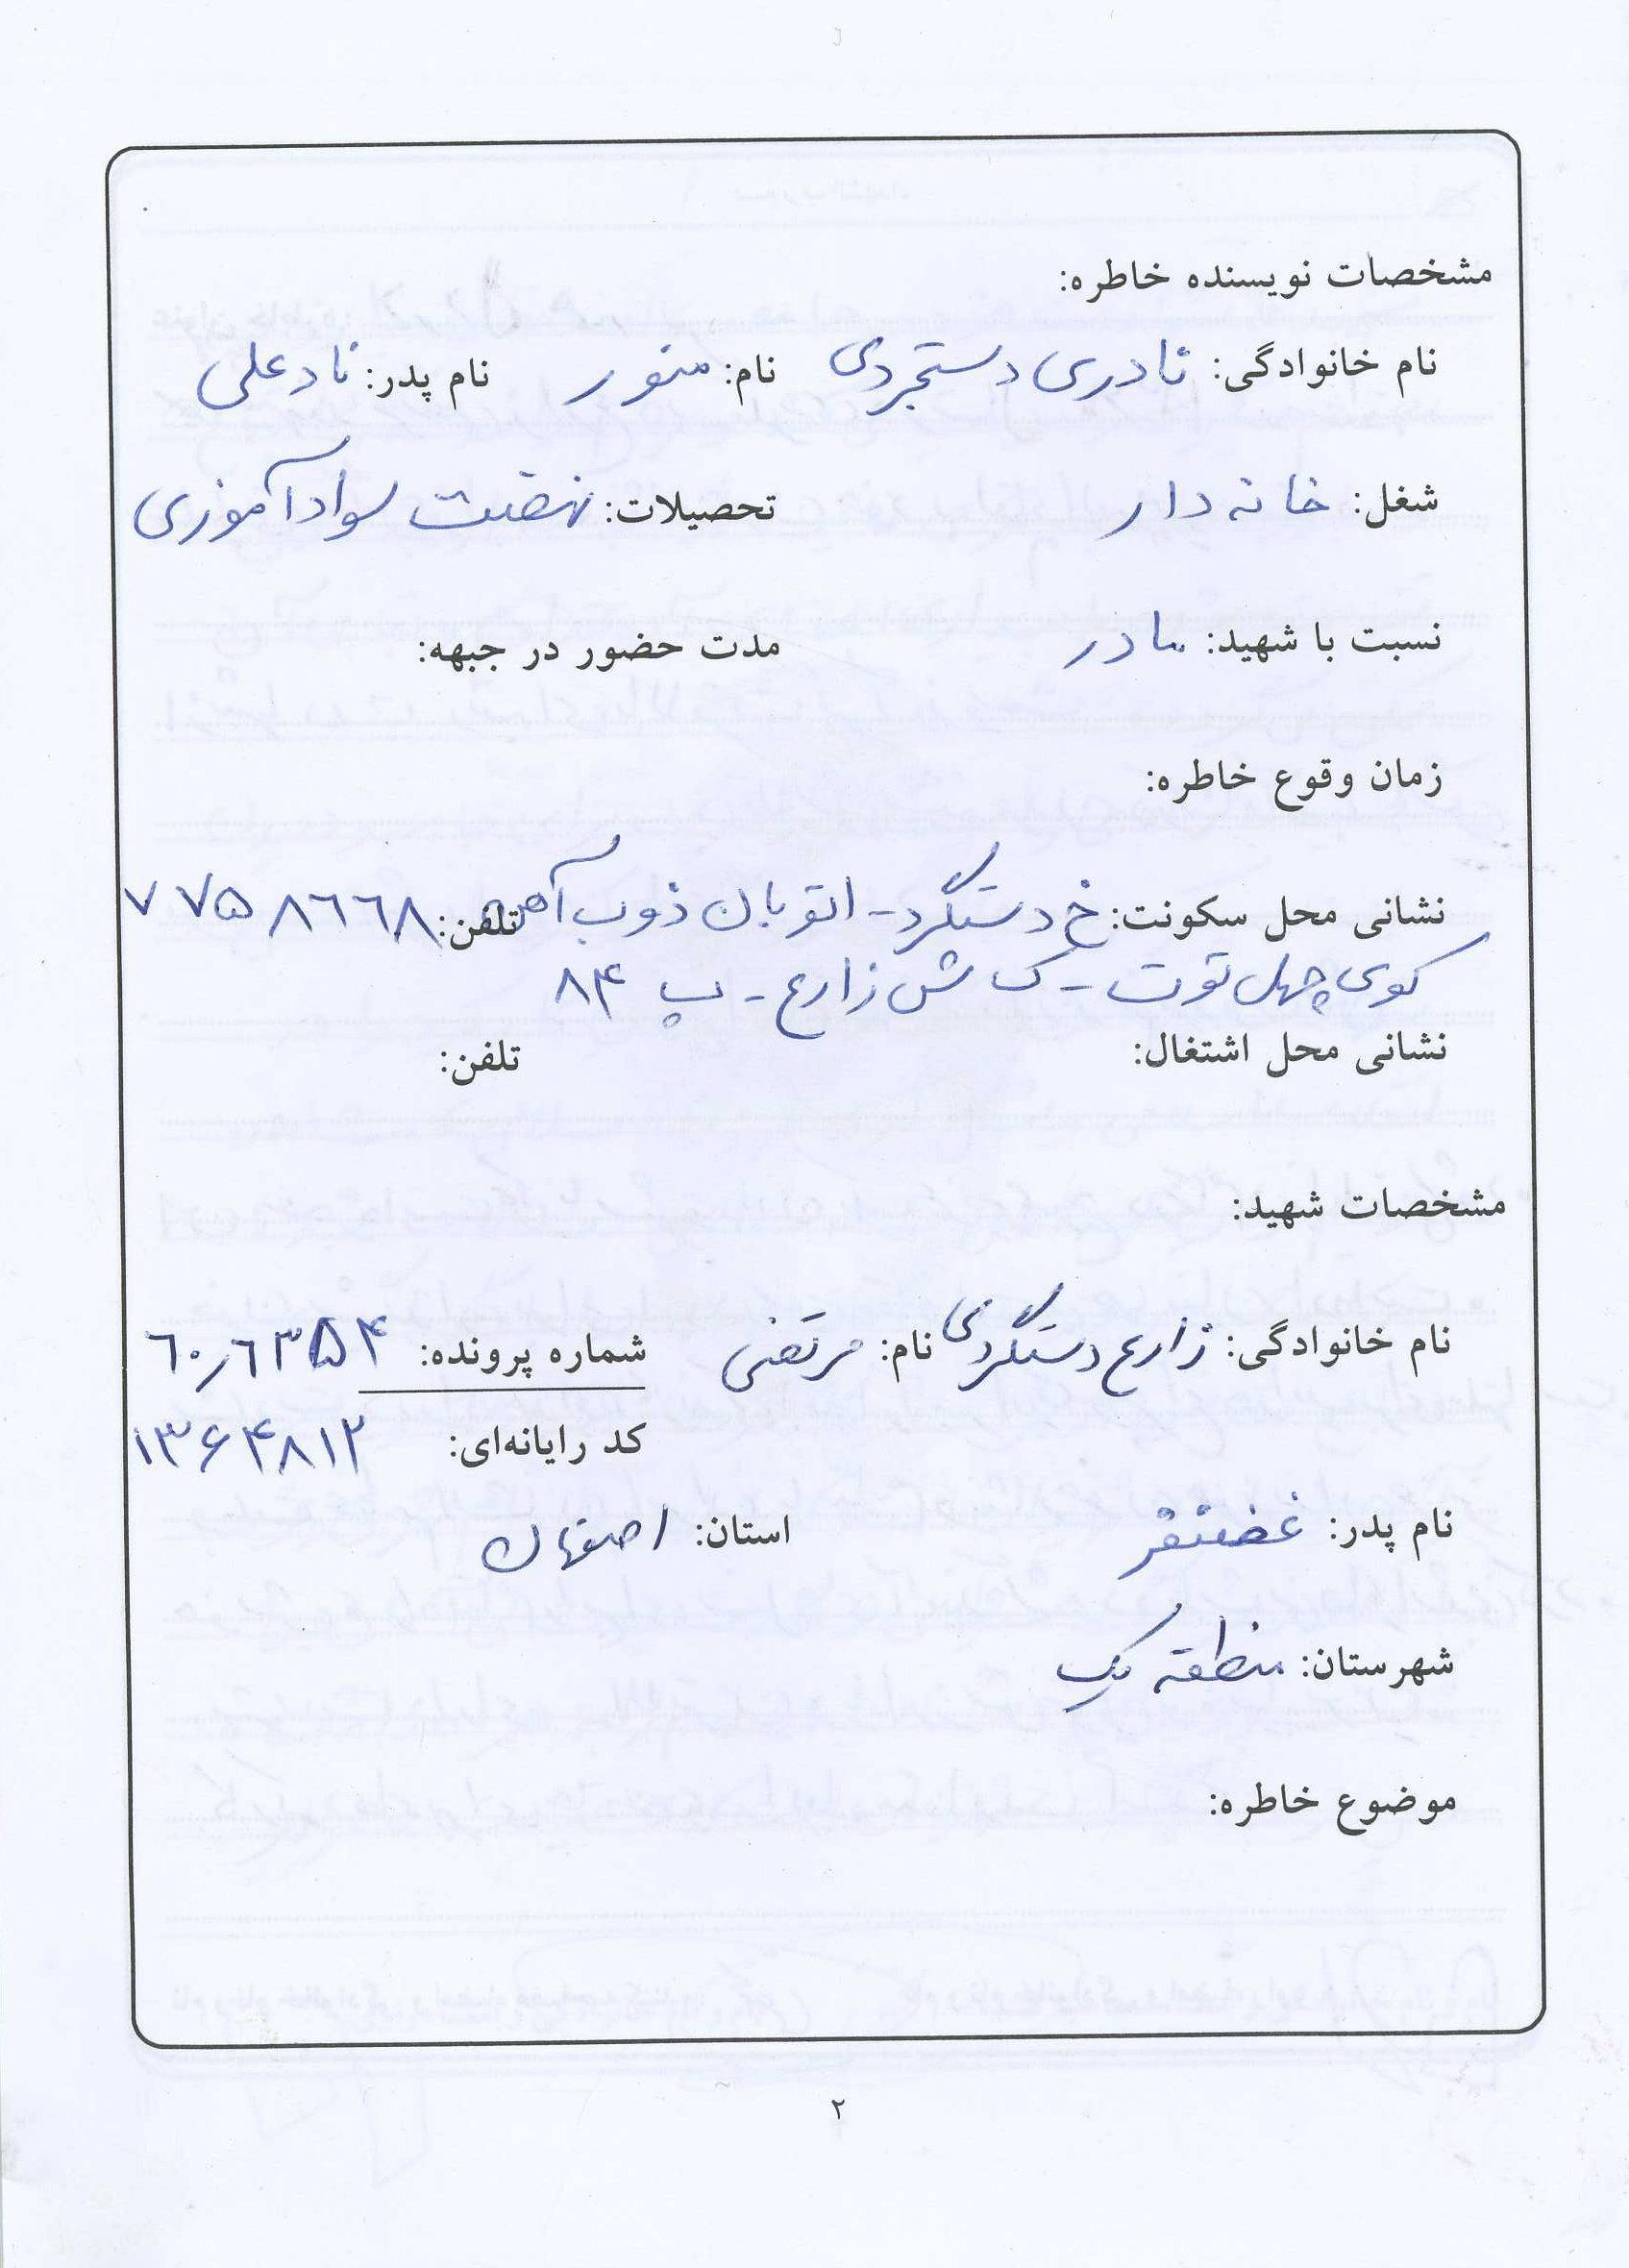 مشخصات نویسنده خاطره:
نام خانوادگی: نادری دستجردی نام: منور نام پدر: نادعلی
شغل: خانه دار تحصیلات: نهضت سوادآموزی
نسبت با شهید: مادر مدت حضور در جبهه:
زمان وقوع خاطره:
نشانی محل سکونت: خ دستگرد - اتوبان ذوب آهن تلفن: ۷۷۵۸۶۶۸
کوی چهل توت - ک ش زارع - پ ۸۴
نشانی محل اشتغال: تلفن:
مشخصات شهید:
نام خانوادگی: زارع دستگردی نام: مرتضی شماره پرونده: ۶۰٫۶۳۵۴
کد رایانه‌ای: ۱۳۶۴۸۱۲
نام پدر: غضنفر استان: اصفهان
شهرستان: منطقه یک
موضوع خاطره:
۲